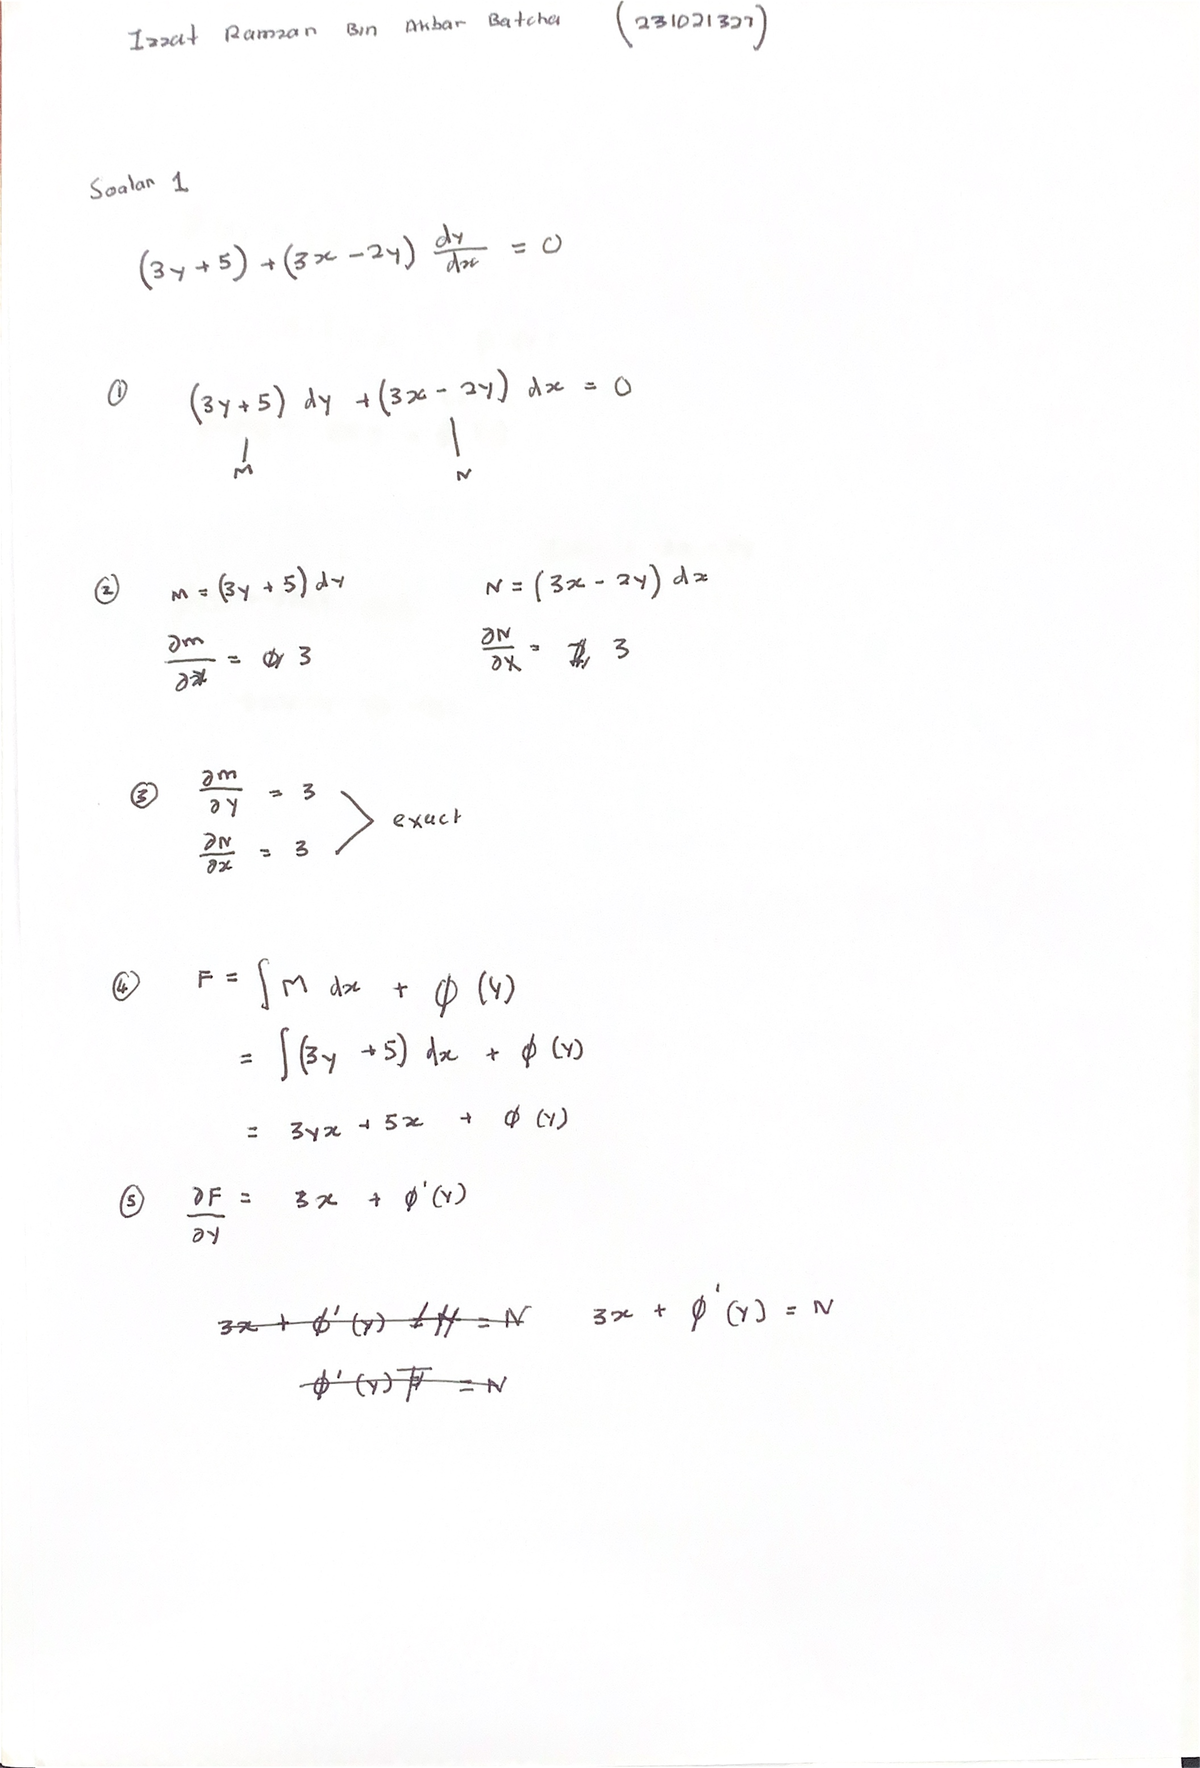 Izzat Ramzan Bin Akbar Batcha (231021327)
Soalan 1
(3y + 5) + (3x - 2y) dy/dx = 0
① (3y + 5) dy + (3x - 2y) dx = 0
M N
② M = (3y + 5) dy N = (3x - 2y) dx
∂m/∂x = 3 ∂N/∂x = 3
③ ∂m/∂y = 3
exact
∂N/∂x = 3
④ F = ∫ M dx + ϕ (y)
= ∫ (3y + 5) dx + ϕ (y)
= 3yx + 5x + ϕ (y)
⑤ ∂F/∂y = 3x + ϕ'(y)
3x + ϕ'(y) = N 3x + ϕ'(y) = N
ϕ'(y) = N